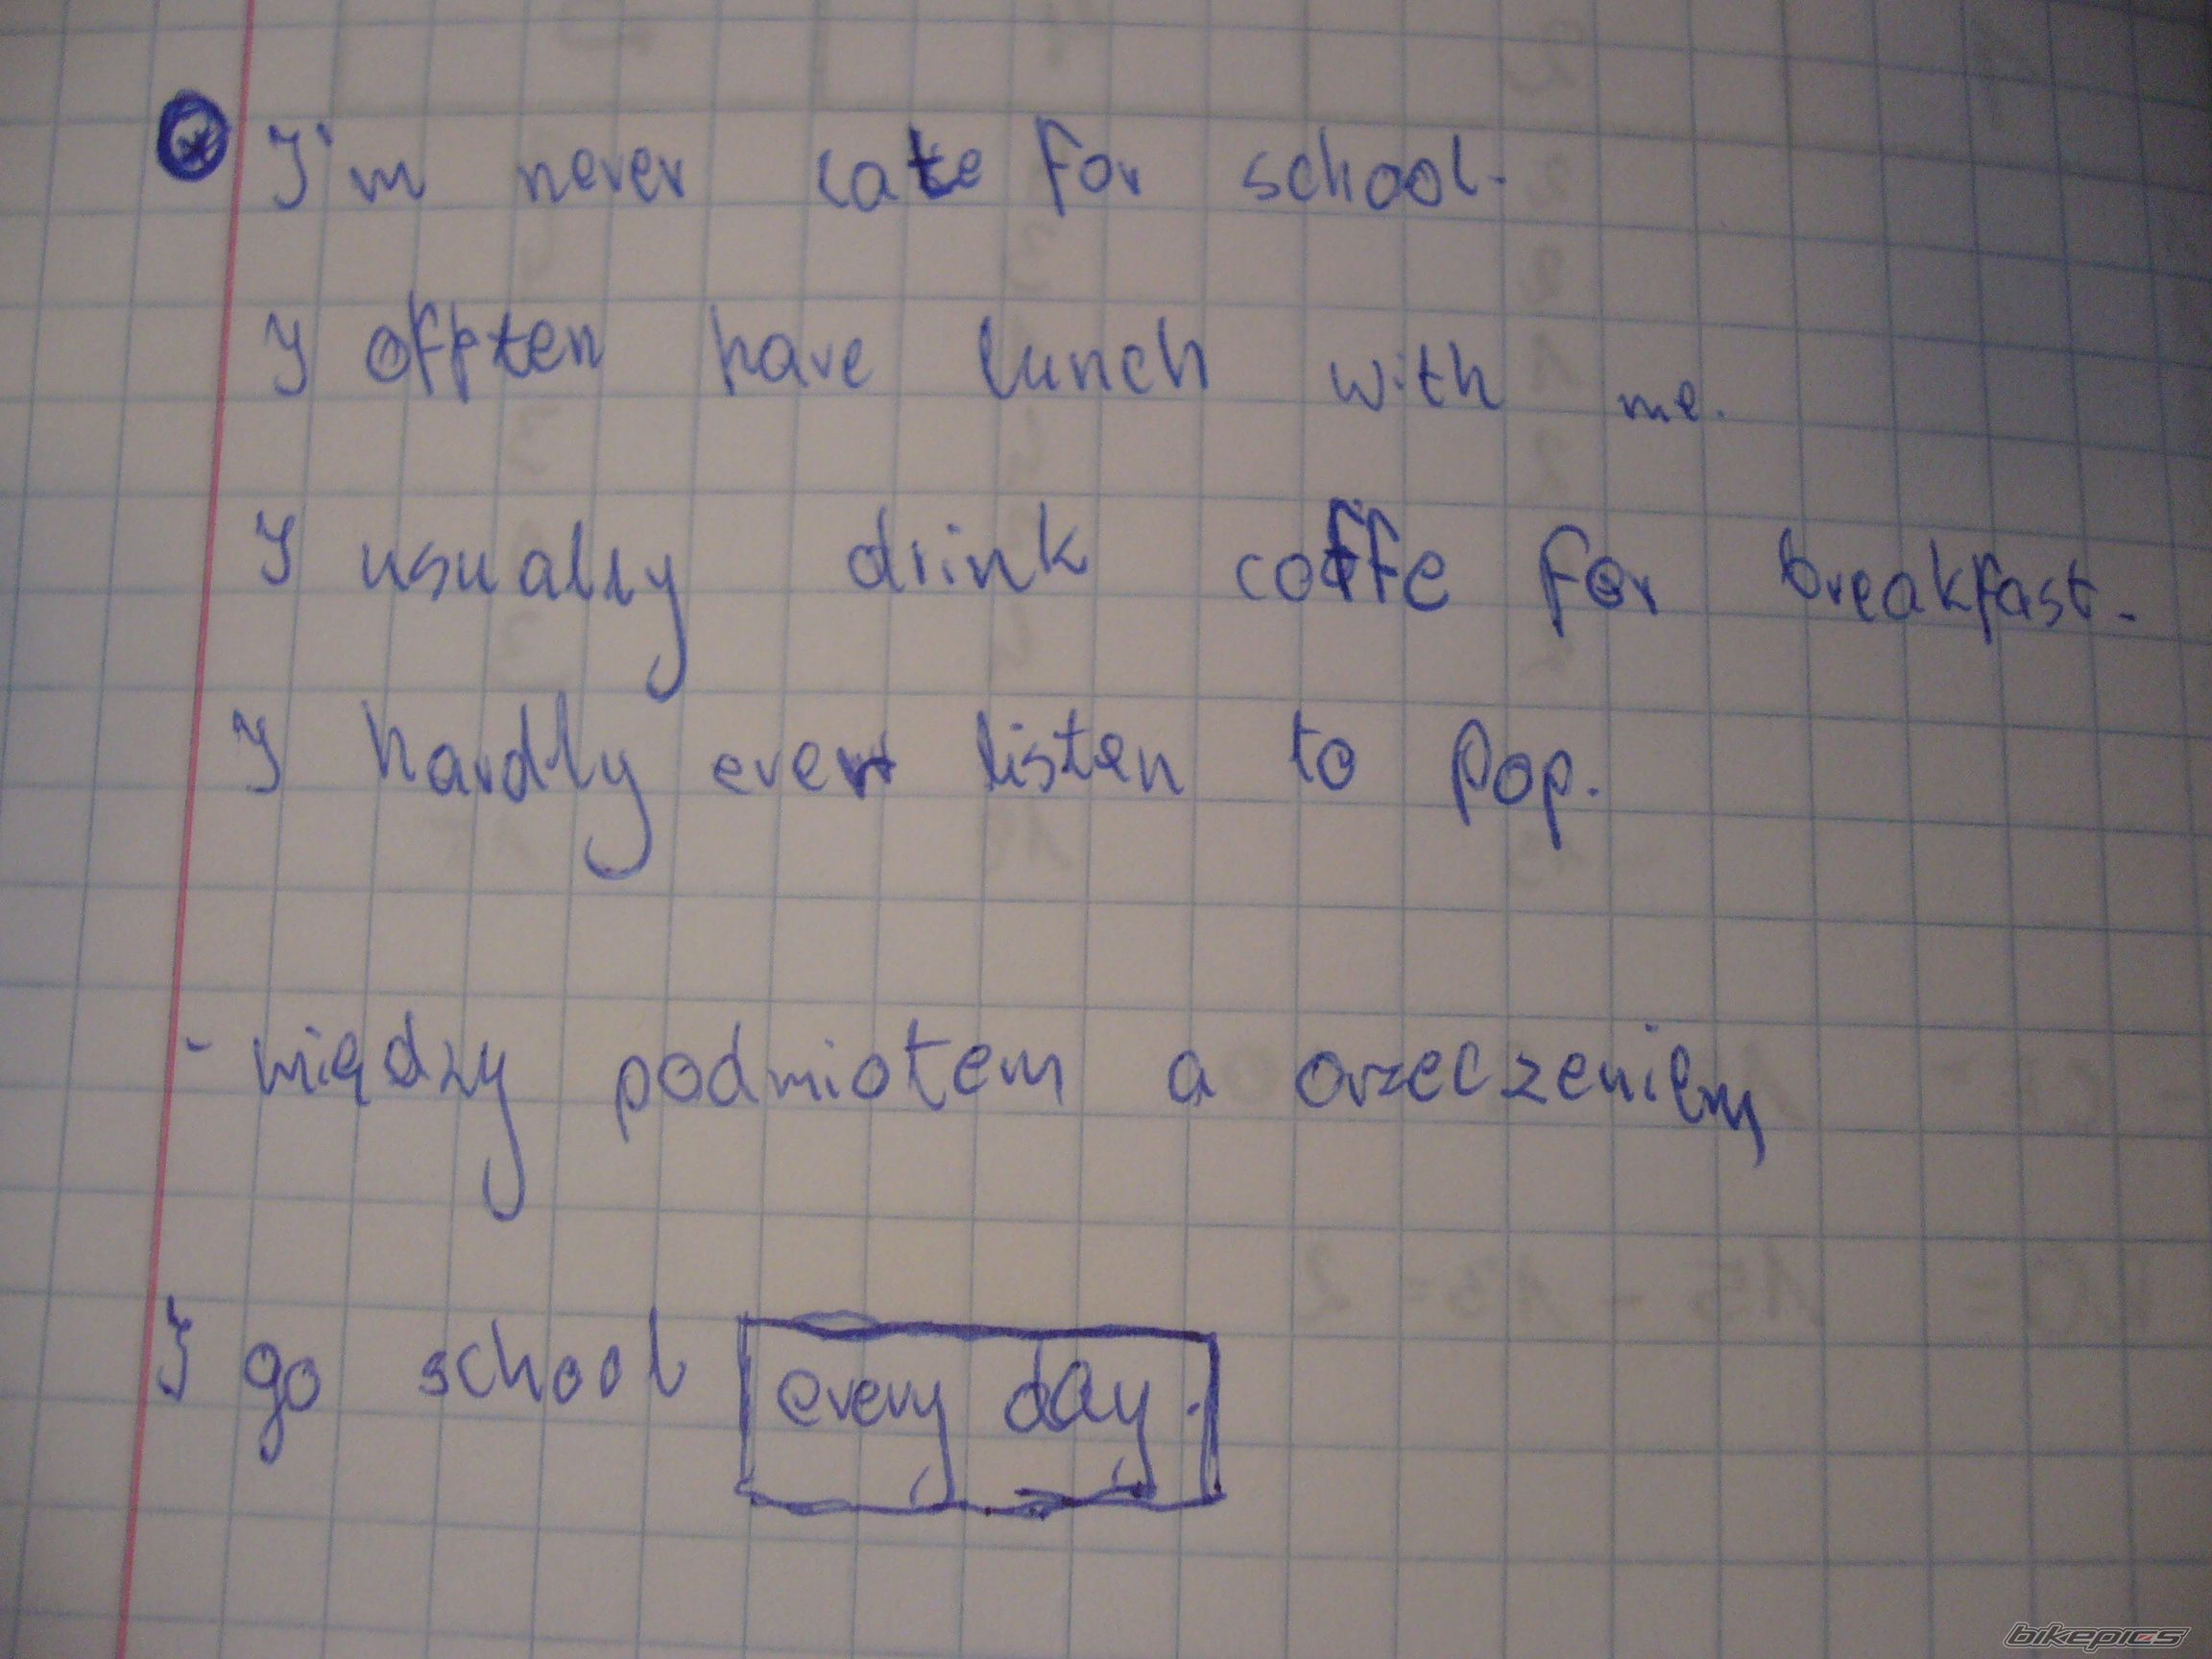 I'm never late for school.
I offten have lunch with me.
I usually drink coffe for breakfast.
I hardly ever listen to pop.
- między podmiotem a orzeczeniem
I go school every day.
15 - 13 = 2
bikepics